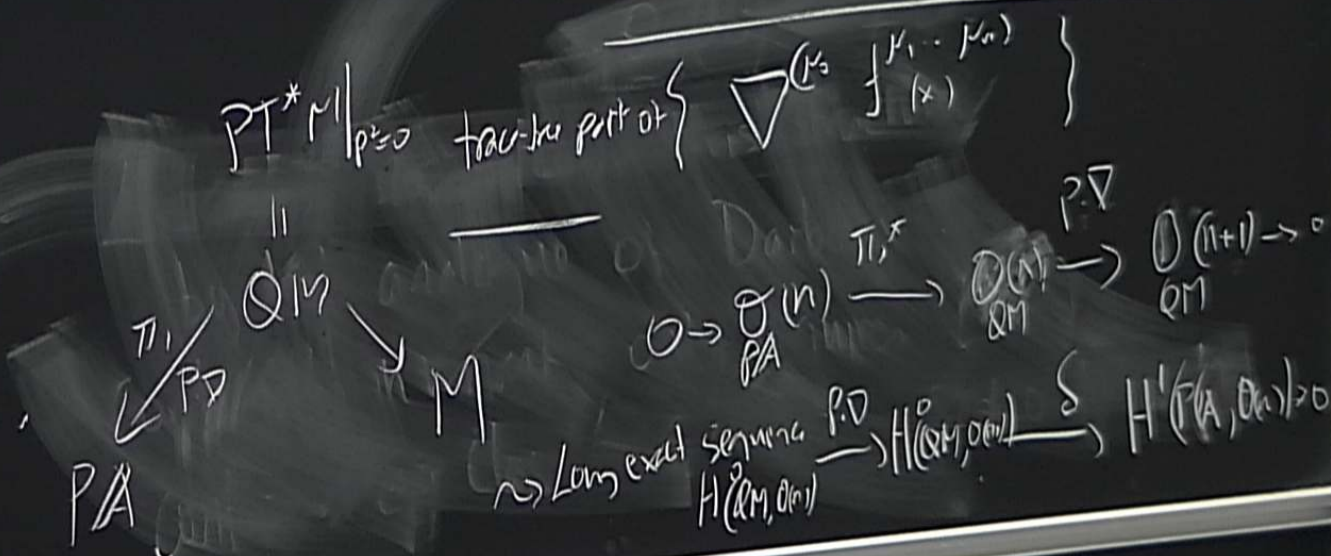 PT*M|_{p²=0} trace-free part of { ∇^{(μ_0} f^{μ_1 ... μ_n)}(x) }
||
QM
π_1 P.D
M
PA
0 → O(n)_{PA} —π_1^*→ O(n)_{QM} —P.∇→ O(n+1)_{QM} → 0
~> Long exact sequence H^0(QM, O(n)) —P.D→ H^0(QM, O(n+1)) —δ→ H^1(PA, O(n)) → 0